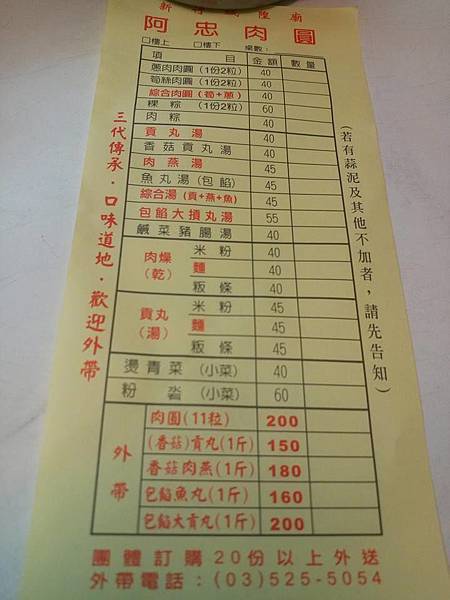 新竹城隍廟
阿忠肉圓
□樓上 □樓下 桌數：
項目 金額 數量
蔥肉肉圓（1份2粒） 40
筍絲肉圓（1份2粒） 40
綜合肉圓（筍+蔥） 40
粿粽（1份2粒） 60
肉粽 40
貢丸湯 40
香菇貢丸湯 40
肉燕湯 45
魚丸湯（包餡） 45
綜合湯（貢+燕+魚） 45
包餡大摃丸湯 55
鹹菜豬腸湯 40
肉燥（乾） 米粉 40
麵 40
粄條 40
貢丸（湯） 米粉 45
麵 45
粄條 45
燙青菜（小菜） 40
粉沯（小菜） 60
外帶
肉圓(11粒) 200
(香菇)貢丸(1斤) 150
香菇肉燕(1斤) 180
包餡魚丸(1斤) 160
包餡大貢丸(1斤) 200
三代傳承．口味道地．歡迎外帶
（若有蒜泥及其他不加者，請先告知）
團體訂購20份以上外送
外帶電話：(03)525-5054